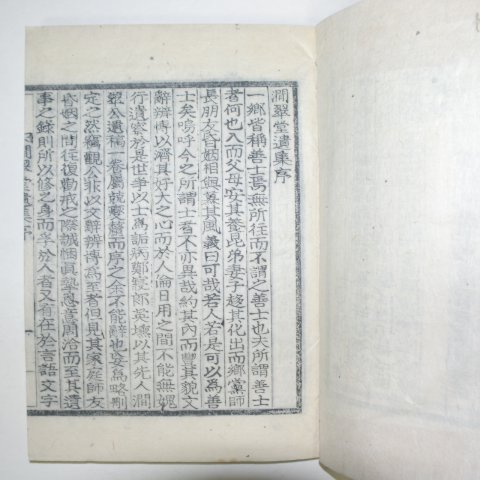 澗翠堂遺集序
一鄉皆稱善士焉無所往而不謂之善士也夫所謂善士
者何也入而父母安其養昆弟妻子趍其化出而鄉黨師
長朋友曁姻相與慕其風義曰可哉若人若是可以爲善
士矣嗚呼今之所謂士者不亦異哉約其內而豊其貌文
辭辨博以濟其好大之心而於人倫日用之間不能無媿
行遺容於是世爭以士爲詬病鄭寢郞英壎以其先人澗
翠公遺稿一卷屬兢燮而序之余不能辭也妄爲略刪
定之然竊觀公非以文辭辨博爲至者但見其家庭師友
昏姻之間往復勸戒之際誠悃眞摯恩意周洽而至其遺
事之錄則所以修之身而孚於人者又有在於言語文字
澗翠堂遺集序